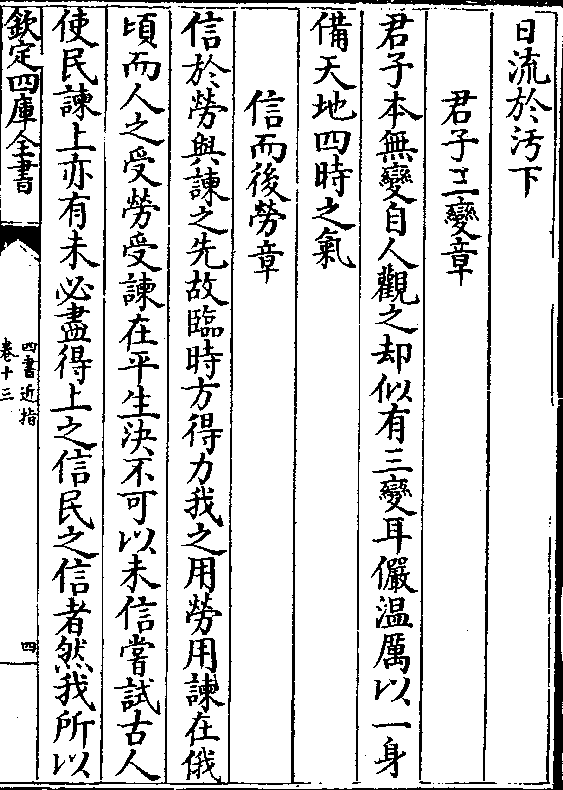 日流於汚下
君子三變章
君子本無變自人觀之却似有三變耳儼温厲以一身
備天地四時之氣
信而後勞章
信於勞與諫之先故臨時方得力我之用勞用諫在俄
頃而人之受勞受諫在平生決不可以未信嘗試古人
使民諫上亦有未必盡得上之信民之信者然我所以
欽定四庫全書
四書近指
卷十三
四